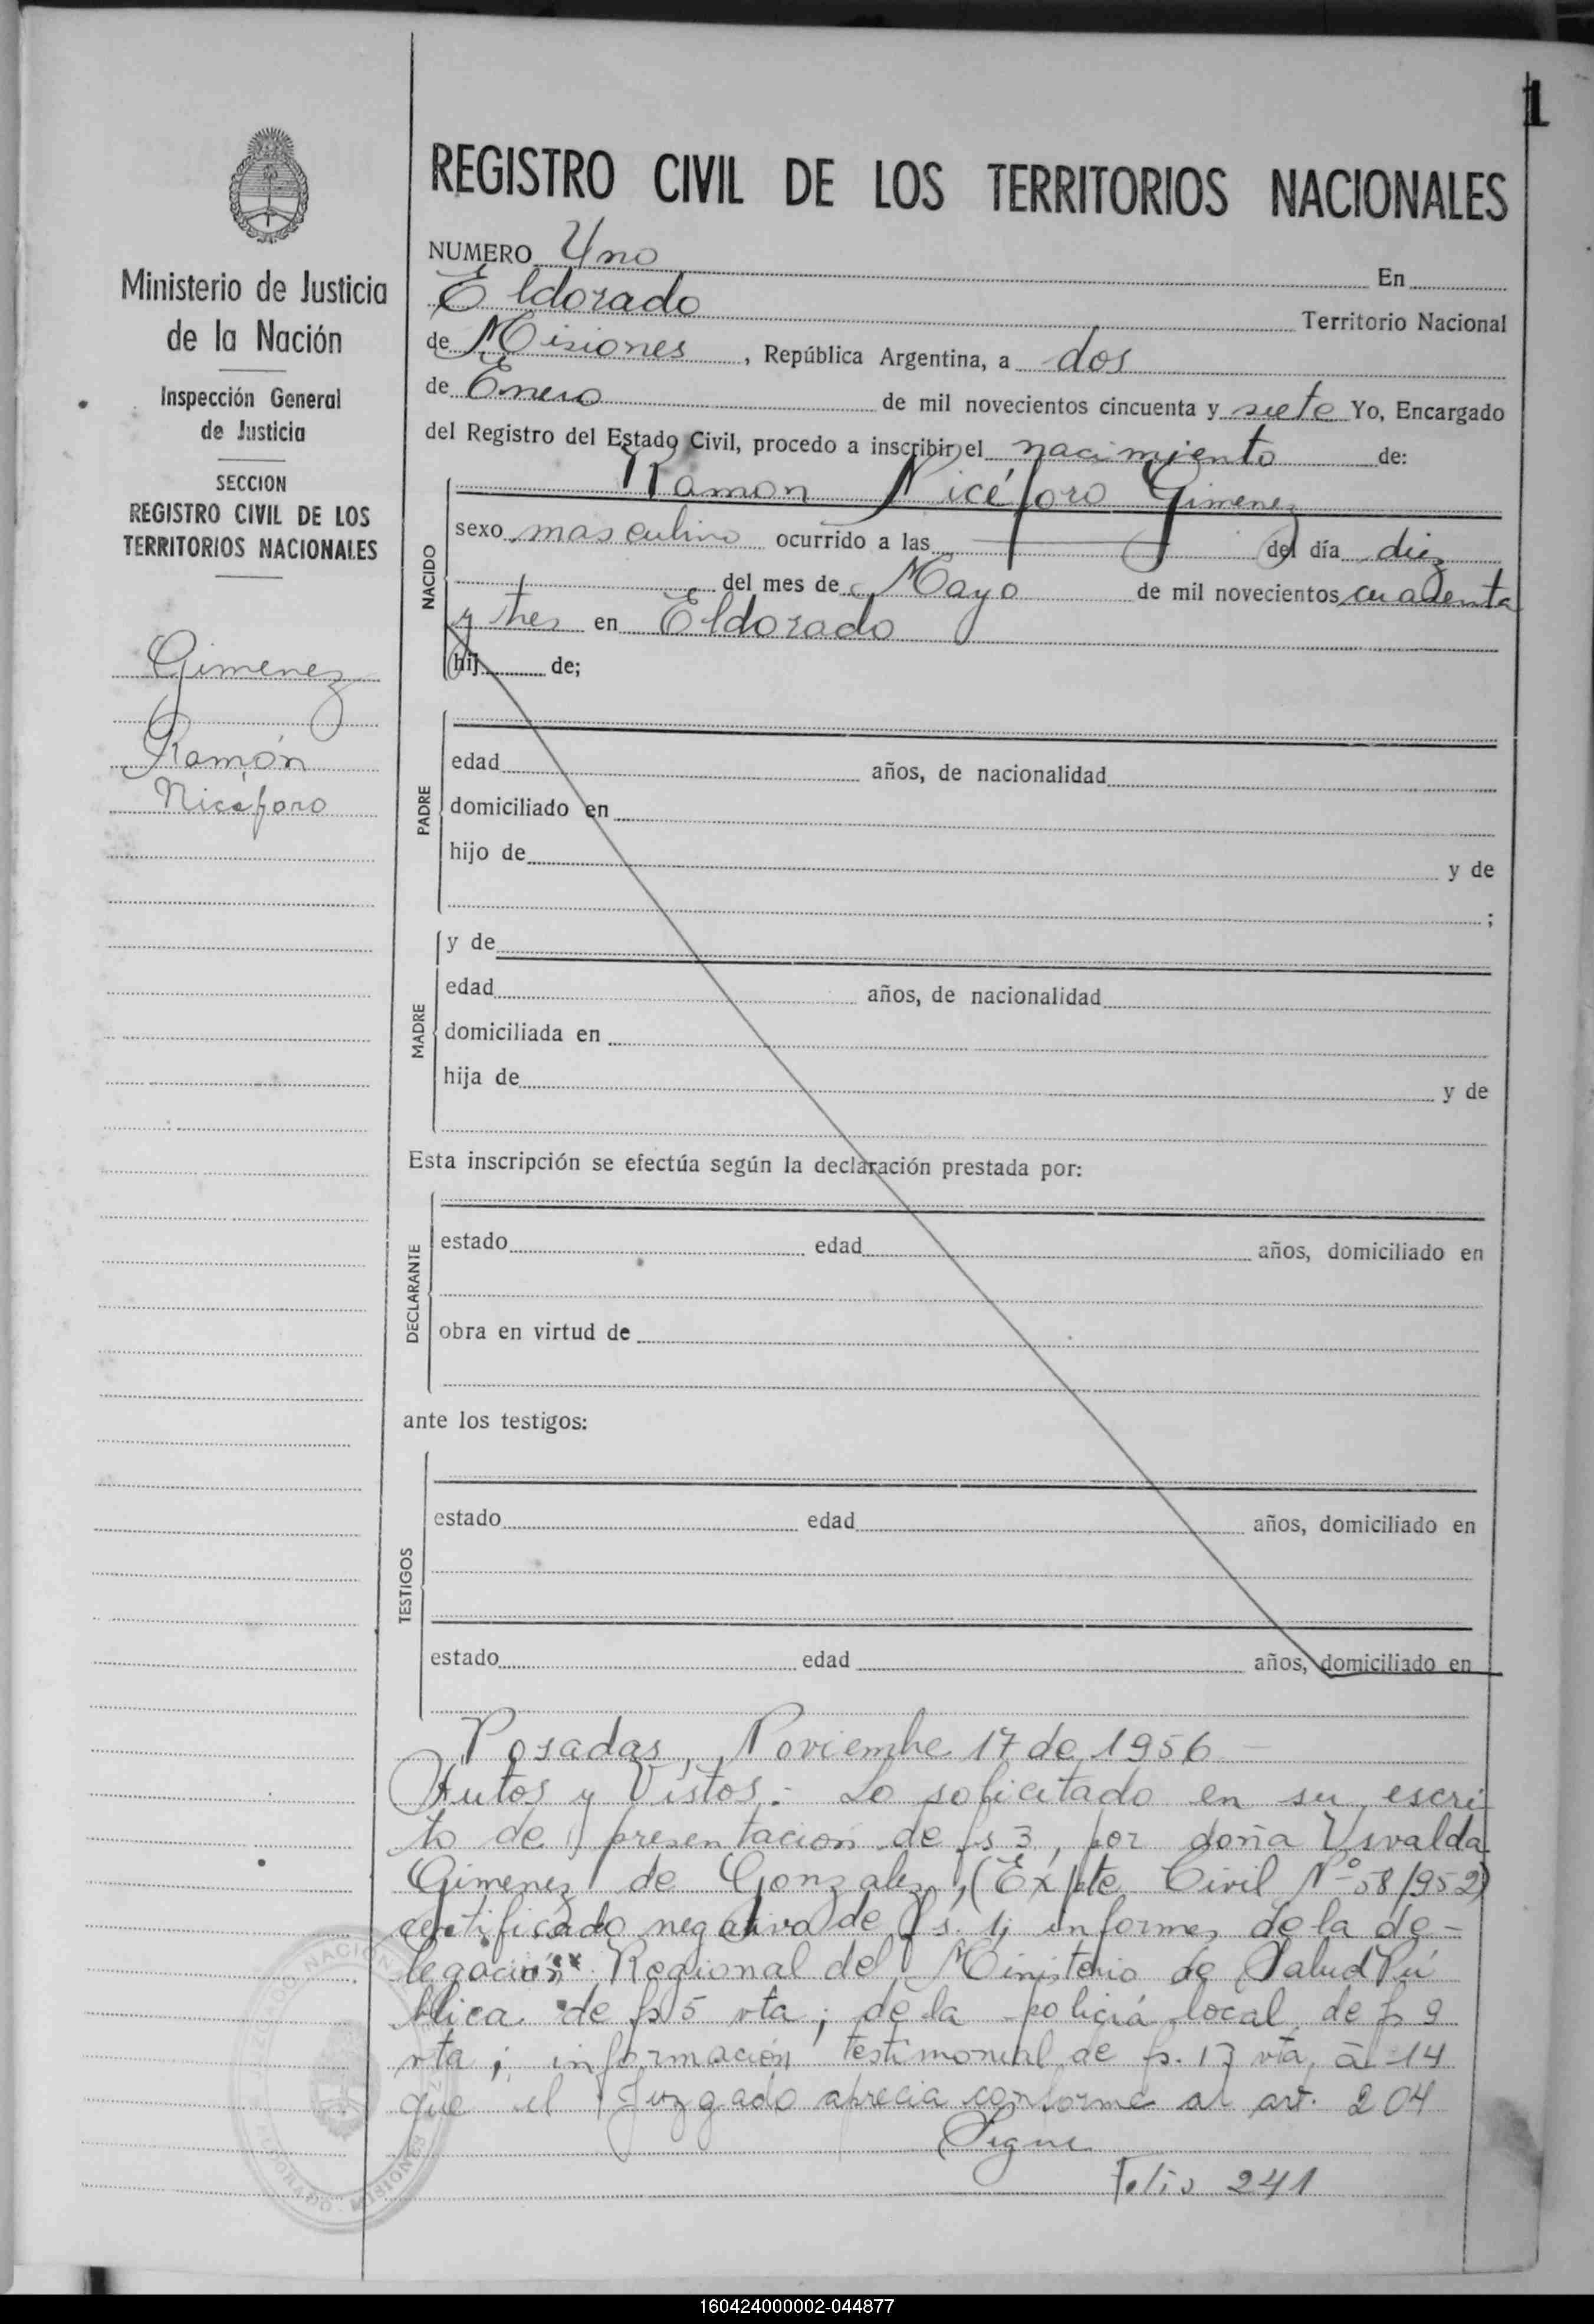 1
REGISTRO CIVIL DE LOS TERRITORIOS NACIONALES
Ministerio de Justicia
de la Nación
Inspección General
de Justicia
SECCION
REGISTRO CIVIL DE LOS
TERRITORIOS NACIONALES
Gimenez
Ramón
Nicéforo
NUMERO Uno En
Eldorado Territorio Nacional
de Misiones, República Argentina, a dos
de Enero de mil novecientos cincuenta y siete Yo, Encargado
del Registro del Estado Civil, procedo a inscribir el nacimiento de:
NACIDO
Ramon Nicéforo Gimenez
sexo masculino ocurrido a las del día diez
del mes de Mayo de mil novecientos cuarenta
y tres en Eldorado
hij de;
PADRE
edad años, de nacionalidad
domiciliado en
hijo de y de
;
MADRE
y de
edad años, de nacionalidad
domiciliada en
hija de y de
Esta inscripción se efectúa según la declaración prestada por:
DECLARANTE
estado edad años, domiciliado en
obra en virtud de
ante los testigos:
TESTIGOS
estado edad años, domiciliado en
estado edad años, domiciliado en
Posadas, Noviembre 17 de 1956
Autos y Vistos: Lo solicitado en su escri
to de presentación de fs 3, por doña Usvalda
Gimenez de Gonzalez, (Expte Civil Nº 58/952)
certificado negativo de fs. 1; informes de la de-
legación Regional del Ministerio de Salud Pú
blica de fs 5 vta; de la policia local de fs 9
vta; información testimonial de fs. 13 vta, a 14
que el Juzgado aprecia conforme al art. 204
Sigue
Folio 241
160424000002-044877